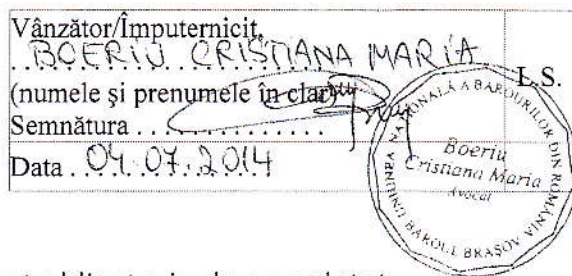 Vânzător/Împuternicit,
BOERIU CRISTIANA MARIA
L.S.
(numele şi prenumele în clar)
Semnătura . . . . . . . . . . . . . . . .
Data . 04.07.2014
UNIUNEA NAŢIONALĂ A BAROURILOR DIN ROMÂNIA
BAROUL BRAŞOV
Boeriu
Cristiana Maria
Avocat